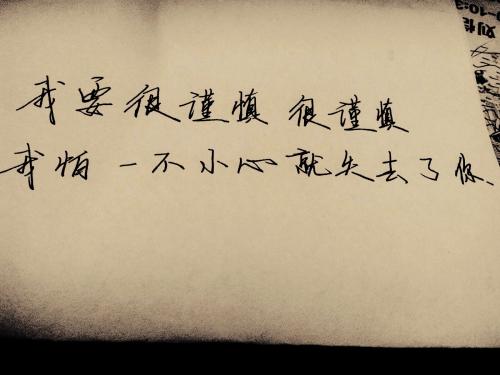 我要很谨慎很谨慎
我怕一不小心就失去了你、